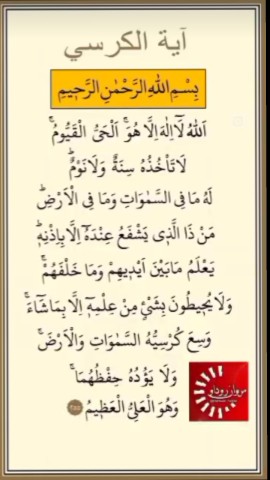 آية الكرسي
بِسْمِ اللهِ الرَّحْمٰنِ الرَّحِيمِ
اَللهُ لَٓا اِلٰهَ اِلَّا هُوَۚ اَلْحَيُّ الْقَيُّومُۚ
لَا تَأْخُذُهُ سِنَةٌ وَلَا نَوْمٌۜ
لَهُ مَا فِي السَّمٰوَاتِ وَمَا فِي الْاَرْضِۜ
مَنْ ذَا الَّذ۪ي يَشْفَعُ عِنْدَهُٓ اِلَّا بِاِذْنِه۪ۜ
يَعْلَمُ مَا بَيْنَ اَيْد۪يهِمْ وَمَا خَلْفَهُمْۚ
وَلَا يُح۪يطُونَ بِشَيْءٍ مِنْ عِلْمِه۪ٓ اِلَّا بِمَا شَٓاءَۚ
وَسِعَ كُرْسِيُّهُ السَّمٰوَاتِ وَالْاَرْضَۚ
وَلَا يَؤُدُهُ حِفْظُهُمَاۚ
وَهُوَ الْعَلِيُّ الْعَظ۪يمُ ٢٥٥